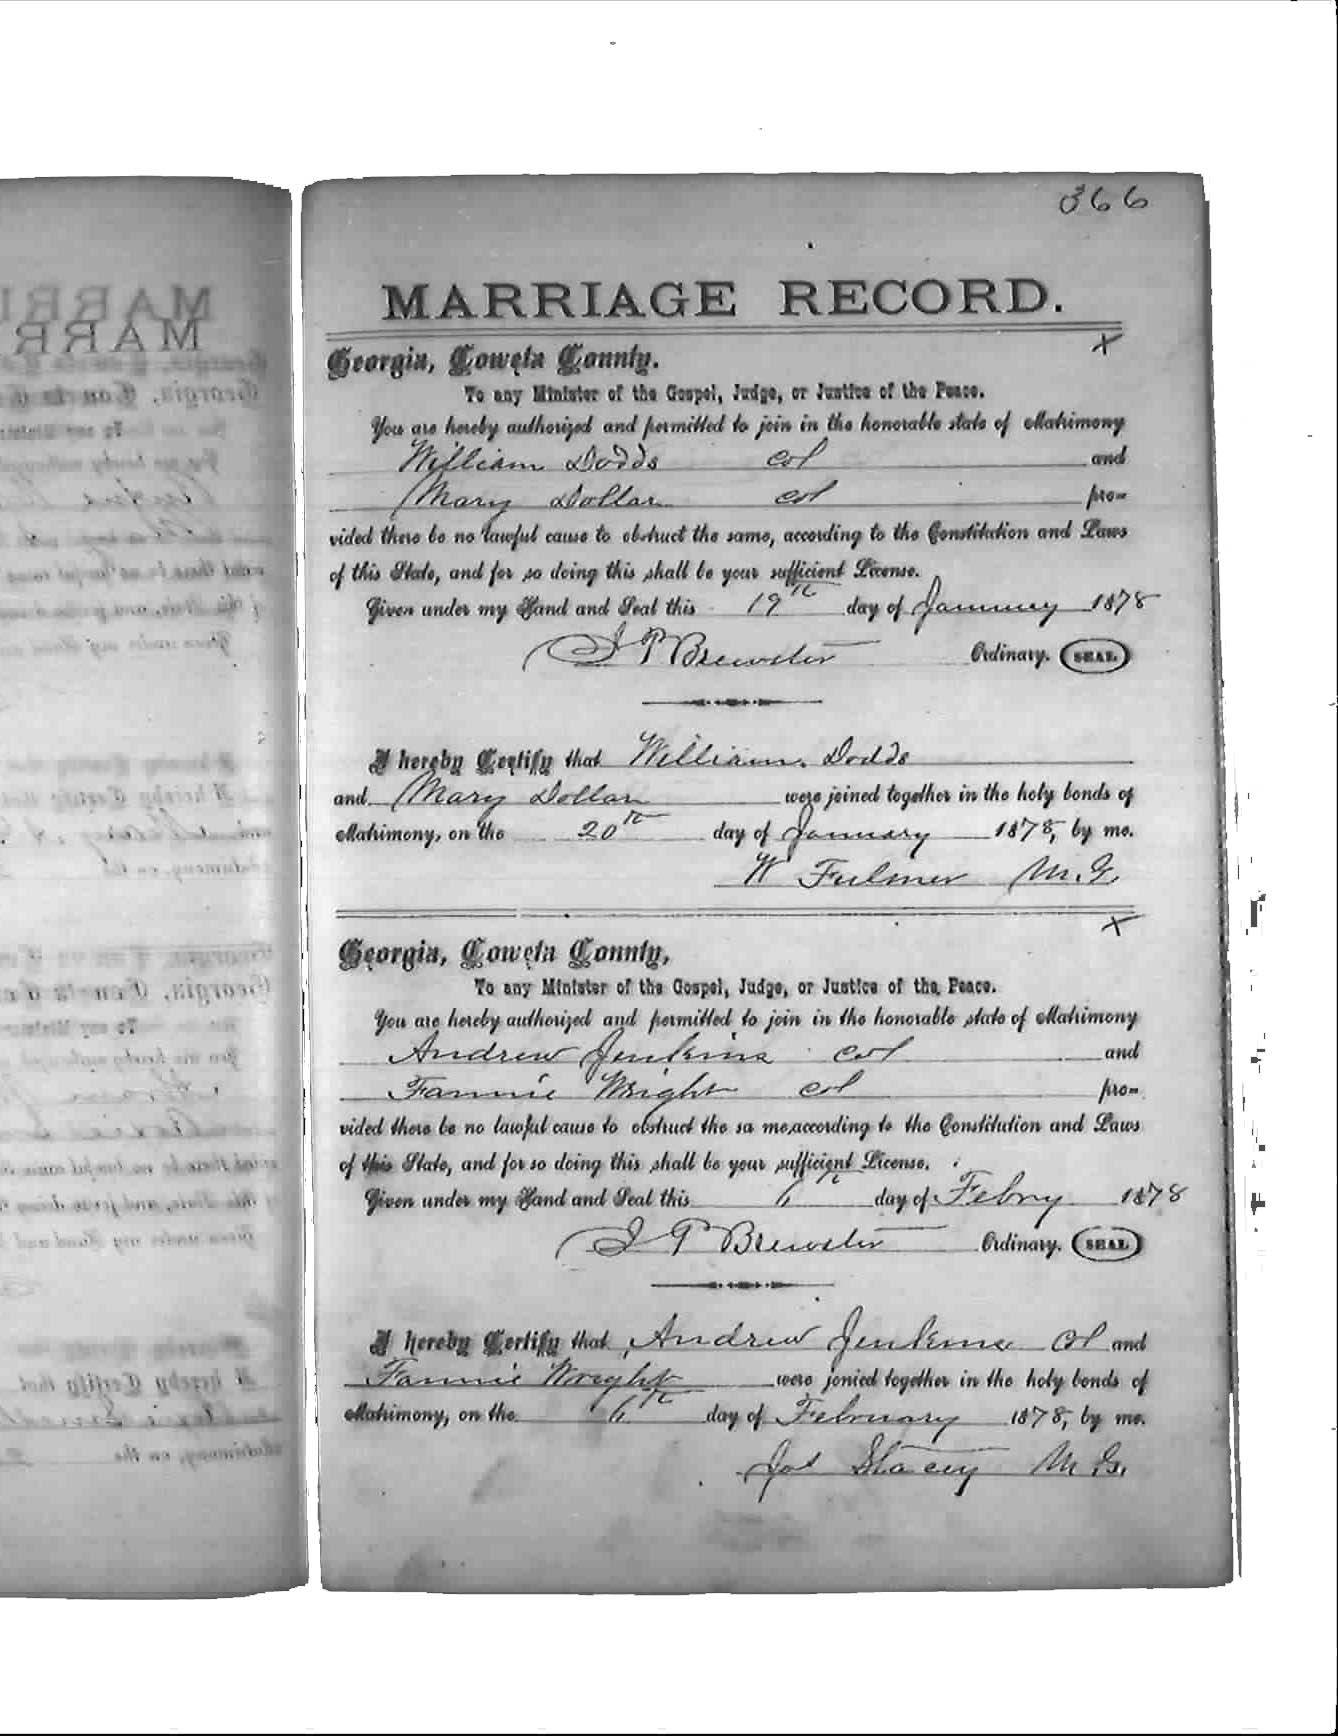 366
MARRIAGE RECORD.
x
Georgia, Coweta County.
To any Minister of the Gospel, Judge, or Justice of the Peace.
You are hereby authorized and permitted to join in the honorable state of Matrimony
William Dodds col and
Mary Dollar col pro-
vided there be no lawful cause to obstruct the same, according to the Constitution and Laws
of this State, and for so doing this shall be your sufficient License.
Given under my Hand and Seal this 19th day of January 1878
J P Brewster Ordinary. SEAL
I hereby Certify that William Dodds
and Mary Dollar were joined together in the holy bonds of
Matrimony, on the 20th day of January 1878, by me.
W Fulmer M.G.
x
Georgia, Coweta County,
To any Minister of the Gospel, Judge, or Justice of the Peace.
You are hereby authorized and permitted to join in the honorable state of Matrimony
Andrew Jenkins col and
Fannie Wright col pro-
vided there be no lawful cause to obstruct the sa me,according to the Constitution and Laws
of this State, and for so doing this shall be your sufficient License.
Given under my Hand and Seal this 6th day of Febry 1878
J P Brewster Ordinary. SEAL
I hereby Certify that Andrew Jenkins Col and
Fannie Wright were jonied together in the holy bonds of
Matrimony, on the 6th day of February 1878, by me.
Jas Stacey M.G.